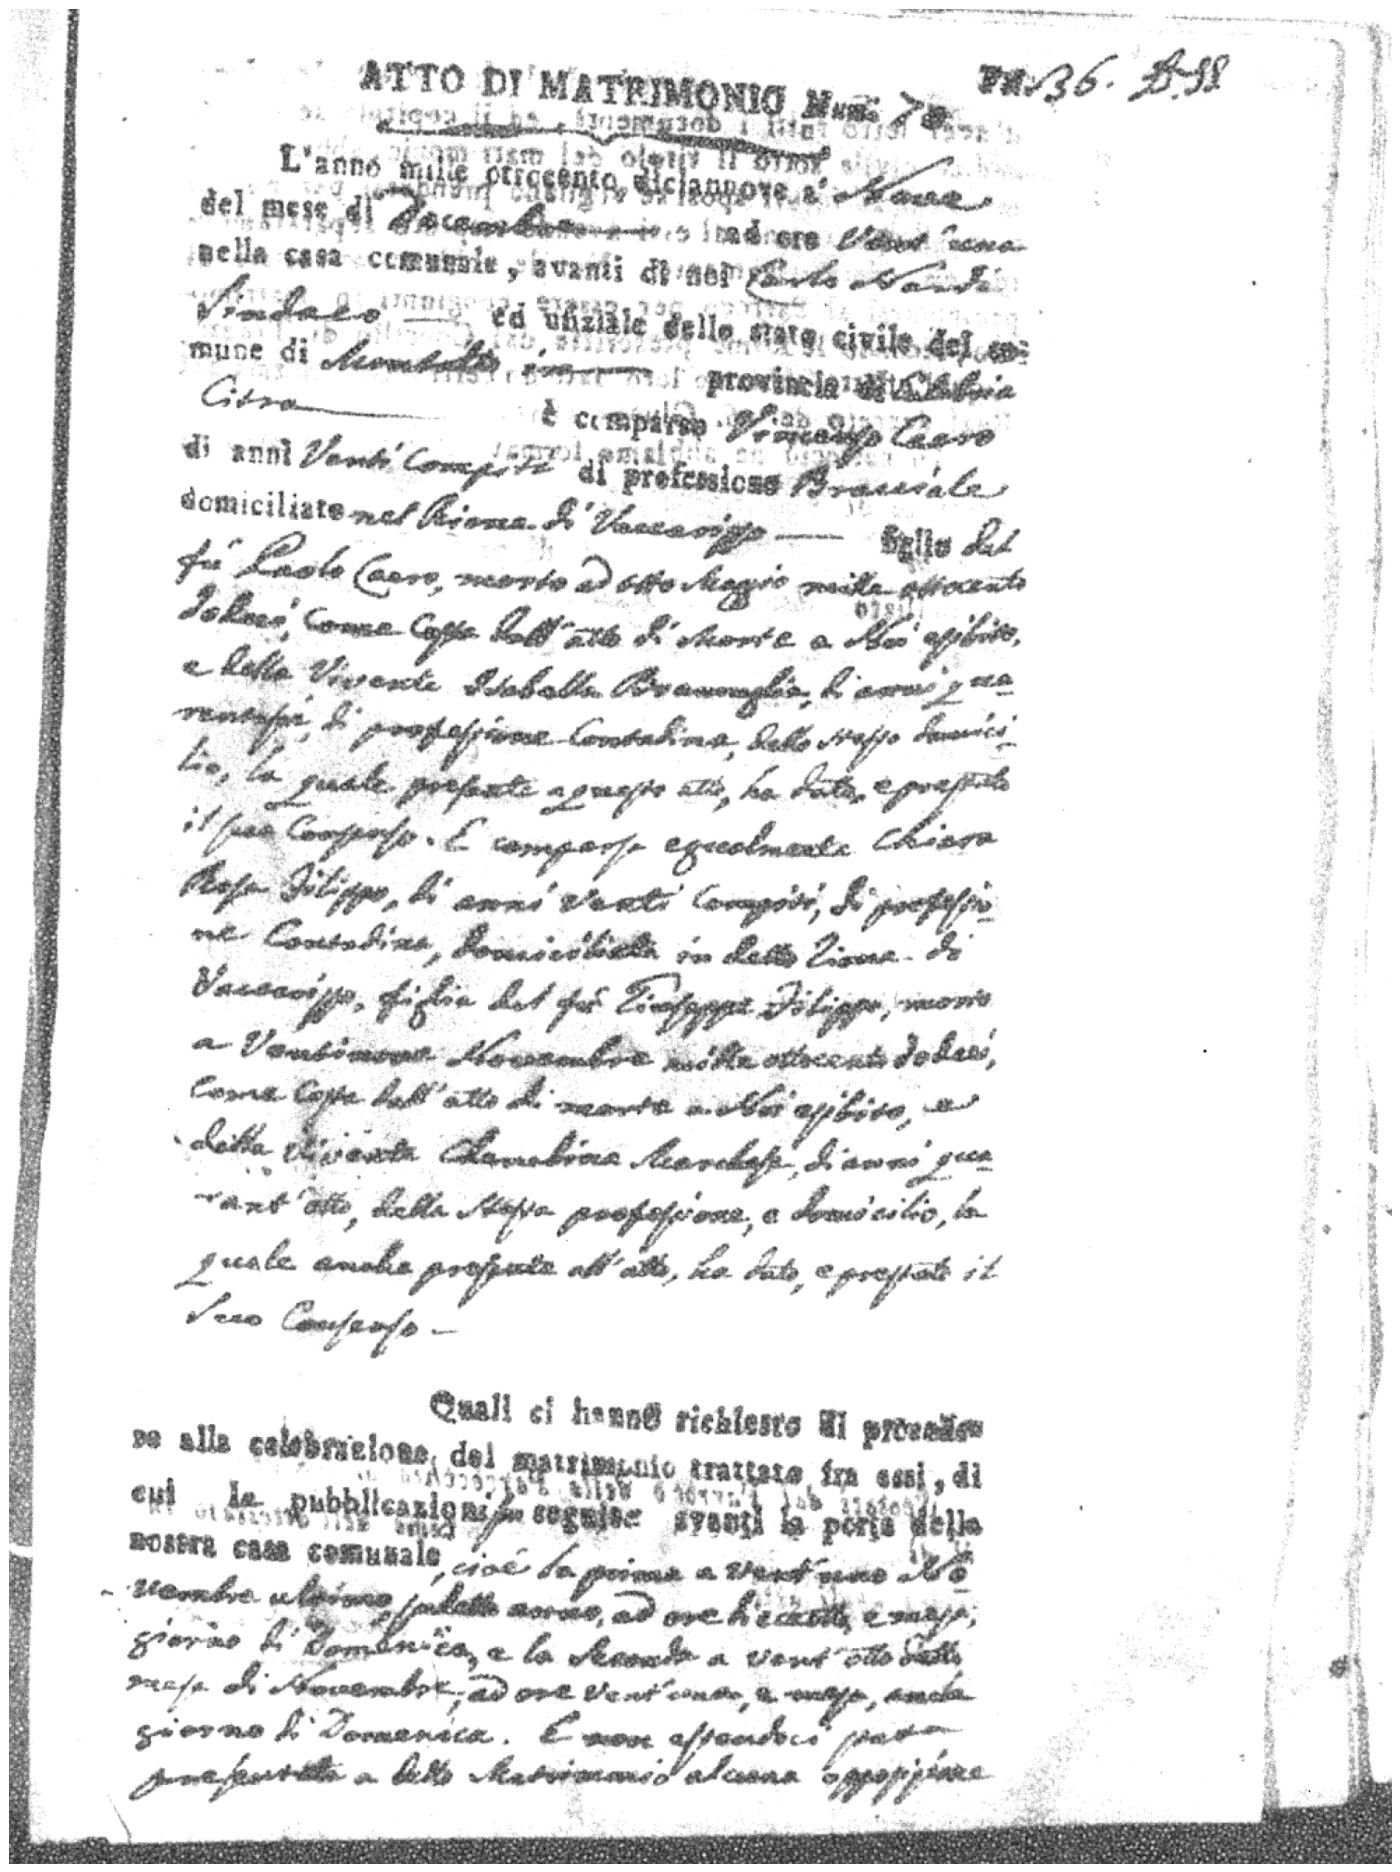 ATTO DI MATRIMONIO Num. 7
36.
L'anno mille ottocento diciannove a' Nove
del mese di Decembre ad ore Vent'una
nella casa comunale, avanti di noi Carlo Nardi
Sindaco ed ufiziale dello stato civile del co-
mune di Montalto in provincia di Calabria
Citra è comparso Vincenzo Caero
di anni Venti Compiti di professione Bracciale
domiciliato nel Rione di Vaccarizzo figlio del
fù Paolo Caero, morto ad otto Maggio mille ottocento
dodeci, Come Costa dall'atto di Morte a Noi esibito,
e della Vivente Isabella di anni qua-
rantasei, di professione Contadina, dello stesso domici-
lio, la quale presente a questo atto, ha dato, e prestato
il suo Consenso. È comparsa egualmente Chiara
Rosa Filippo, di anni Venti Compiti, di professio-
ne Contadina, domiciliata in detto Rione di
Vaccarizzo, figlia del fù Giuseppe Filippo, morto
a Ventinove Novembre mille ottocento dodeci,
Come Costa dall'atto di morte a Noi esibito, e
della vivente Cherubina Marchese, di anni qua-
rant'otto, della stessa professione, e domicilio, la
quale anche presente all'atto, ha dato, e prestato il
Suo Consenso –
Quali ci hanno richiesto di procede-
re alla celebrazione del matrimonio trattato fra essi, di
cui le pubblicazioni seguite avanti la porta della
nostra casa comunale, cioè la prima a vent'uno No-
vembre ultimo, sudetto anno, ad ore diecisette, e mezza,
giorno di Domenica, e la Seconda a vent'otto detto
mese di Novembre, ad ore vent'una, e mezza, anche
giorno di Domenica. E non essendoci stata
presentata a detto Matrimonio alcuna opposizione